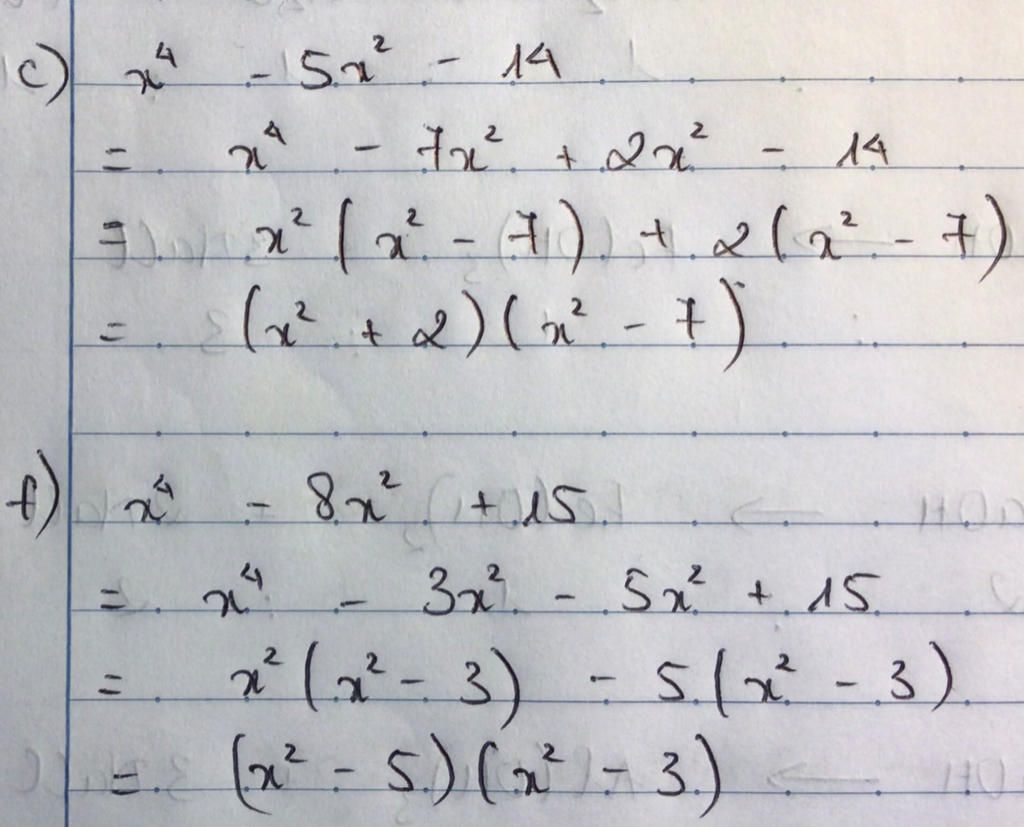 c) x⁴ - 5x² - 14
= x⁴ - 7x² + 2x² - 14
= x² (x² - 7) + 2 (x² - 7)
= (x² + 2)(x² - 7)
f) x⁴ - 8x² + 15
= x⁴ - 3x² - 5x² + 15
= x² (x² - 3) - 5 (x² - 3)
= (x² - 5)(x² - 3)